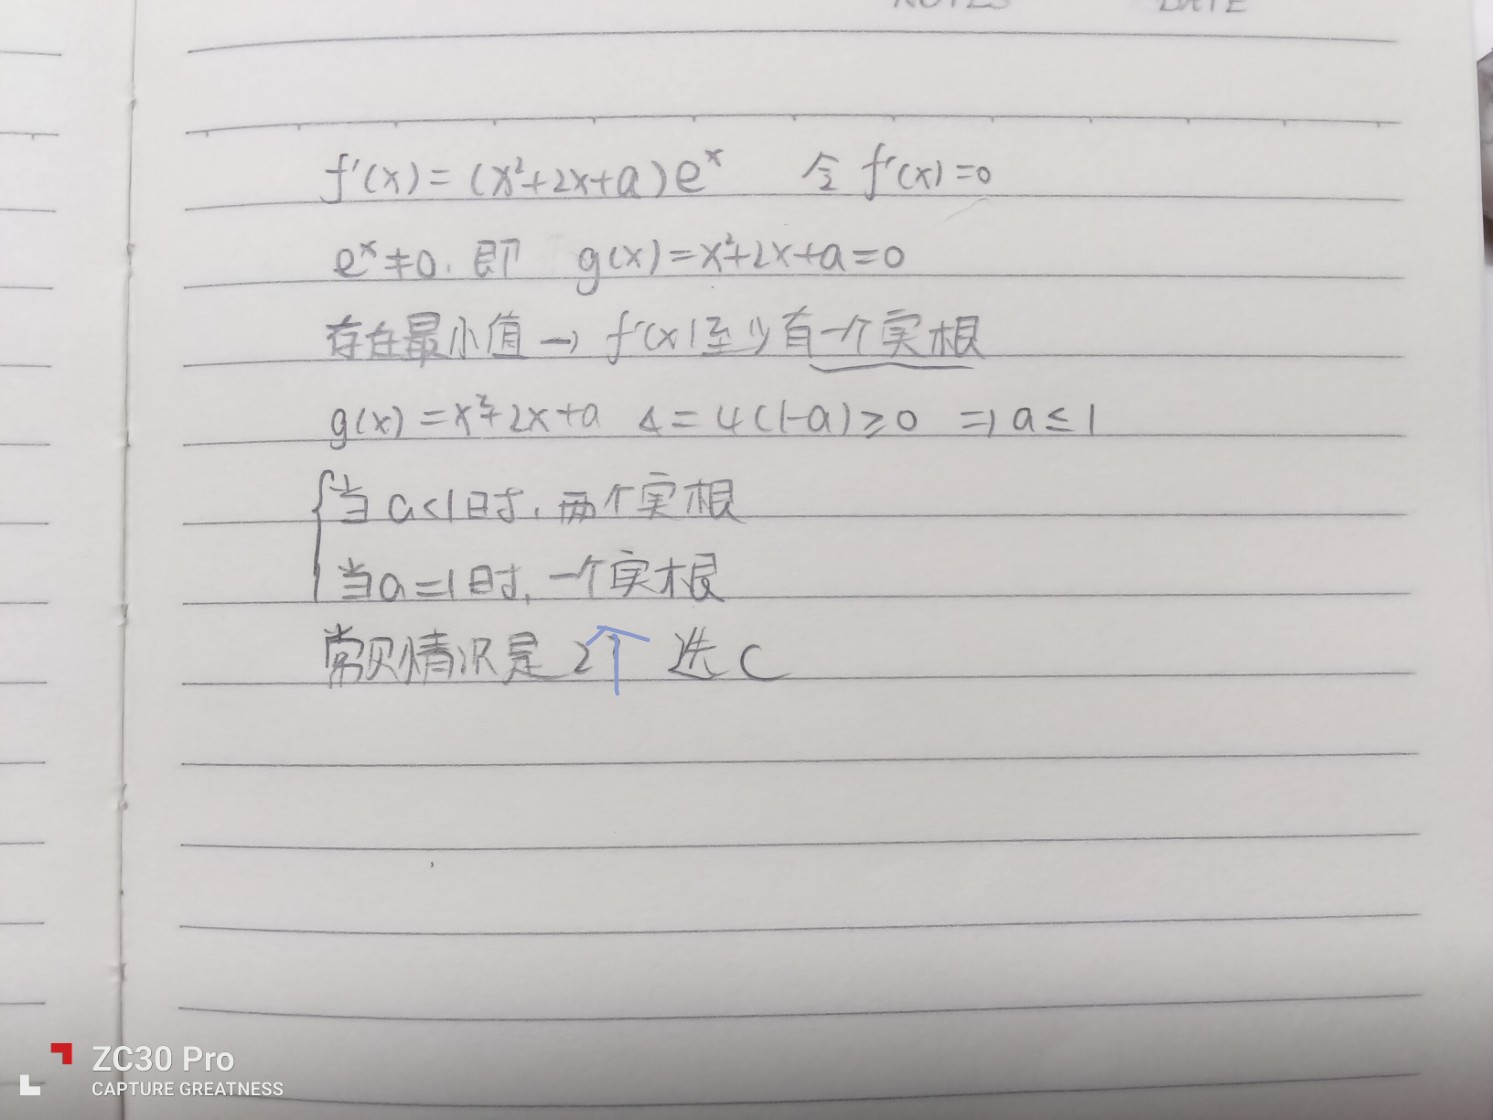 NOTES DATE
f'(x)=(x²+2x+a)eˣ 令f'(x)=0
eˣ≠0.即 g(x)=x²+2x+a=0
存在最小值→f'(x)至少有一个实根
g(x)=x²+2x+a Δ=4(1-a)≥0 ⇒a≤1
当a<1时,两个实根
当a=1时,一个实根
常见情况是2个 选C
ZC30 Pro
CAPTURE GREATNESS